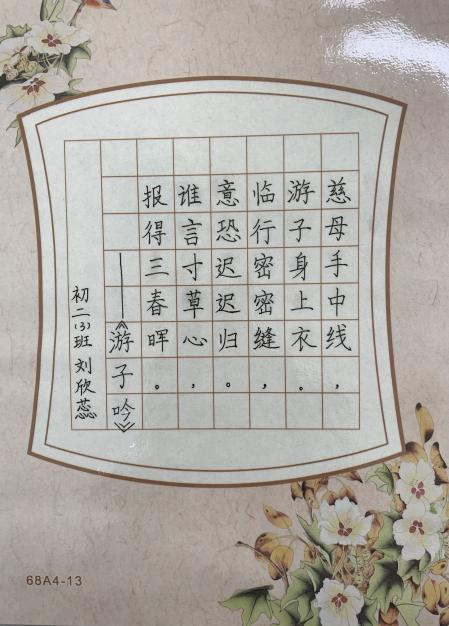 慈母手中线，
游子身上衣。
临行密密缝，
意恐迟迟归。
谁言寸草心，
报得三春晖。
——《游子吟》
初二(3)班 刘欣蕊
68A4-13